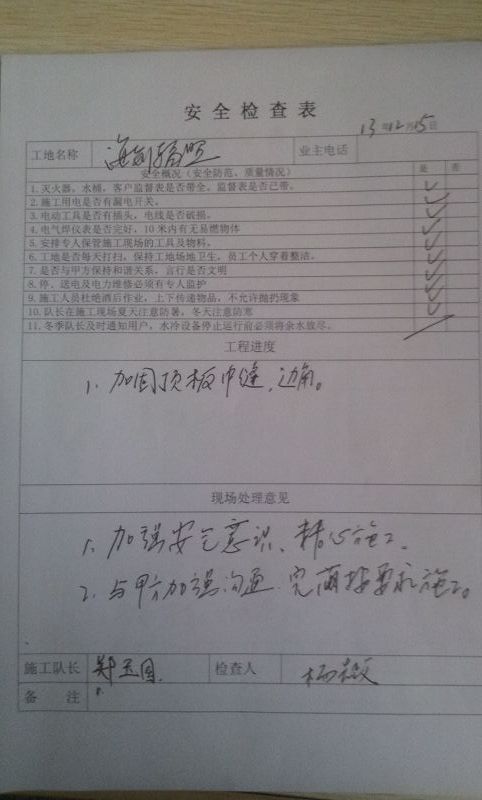 安全检查表
13年12月15日
工地名称 海 业主电话
安全概况（安全防范、质量情况） 是 否
1. 灭火器，水桶，客户监督表是否带全，监督表是否已带。
2. 施工用电是否有漏电开关。
3. 电动工具是否有插头，电线是否破损。
4. 电气焊仪表是否完好，10米内有无易燃物体
5. 安排专人保管施工现场的工具及物料。
6. 工地是否每天打扫，保持工地场地卫生，员工个人穿着整洁。
7. 是否与甲方保持和谐关系，言行是否文明
8. 停、送电及电力维修必须有专人监护
9. 施工人员杜绝酒后作业，上下传递物品，不允许抛扔现象
10. 队长在施工现场夏天注意防暑，冬天注意防寒
11. 冬季队长及时通知用户，水冷设备停止运行前必须将余水放尽。
工程进度
1. 加固顶板中缝、边角。
现场处理意见
1. 加强安全意识、精心施工。
2. 与甲方加强沟通、完善按要求施工。
施工队长 郑玉国 检查人 杨
备 注